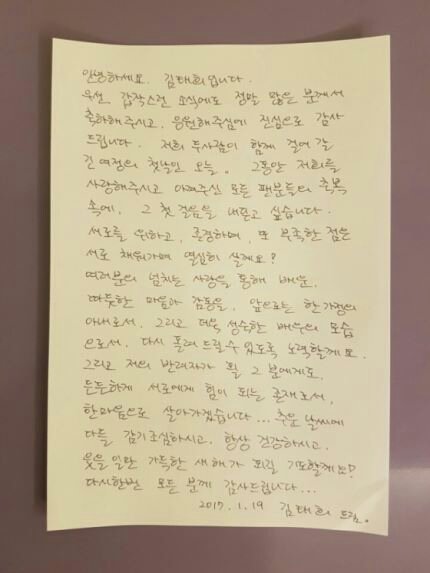 안녕하세요. 김태희입니다.
우선 갑작스런 소식에도 정말 많은 분께서
축하해주시고, 응원해주심에 진심으로 감사
드립니다. 저희 두사람이 함께 걸어 갈
긴 여정의 첫날인 오늘. 그동안 저희를
사랑해주시고 아껴주신 모든 팬분들의 축복
속에, 그 첫 걸음을 내딛고 싶습니다.
서로를 위하고, 존경하며, 또 부족한 점은
서로 채워가며 열심히 살게요?
여러분의 넘치는 사랑을 통해 배운,
따뜻한 마음과 감동을, 앞으로는 한 가정의
아내로서, 그리고 더욱 성숙한 배우의 모습
으로서, 다시 돌려 드릴 수 있도록 노력할게요.
그리고 저의 반려자가 될 그 분에게도,
든든하게 서로에게 힘이 되는 존재로서,
한마음으로 살아가겠습니다... 추운 날씨에
다들 감기조심하시고, 항상 건강하시고,
웃을 일만 가득한 새해가 되길 기도할게요?
다시한번 모든 분께 감사드립니다...
2017. 1. 19 김태희 드림.